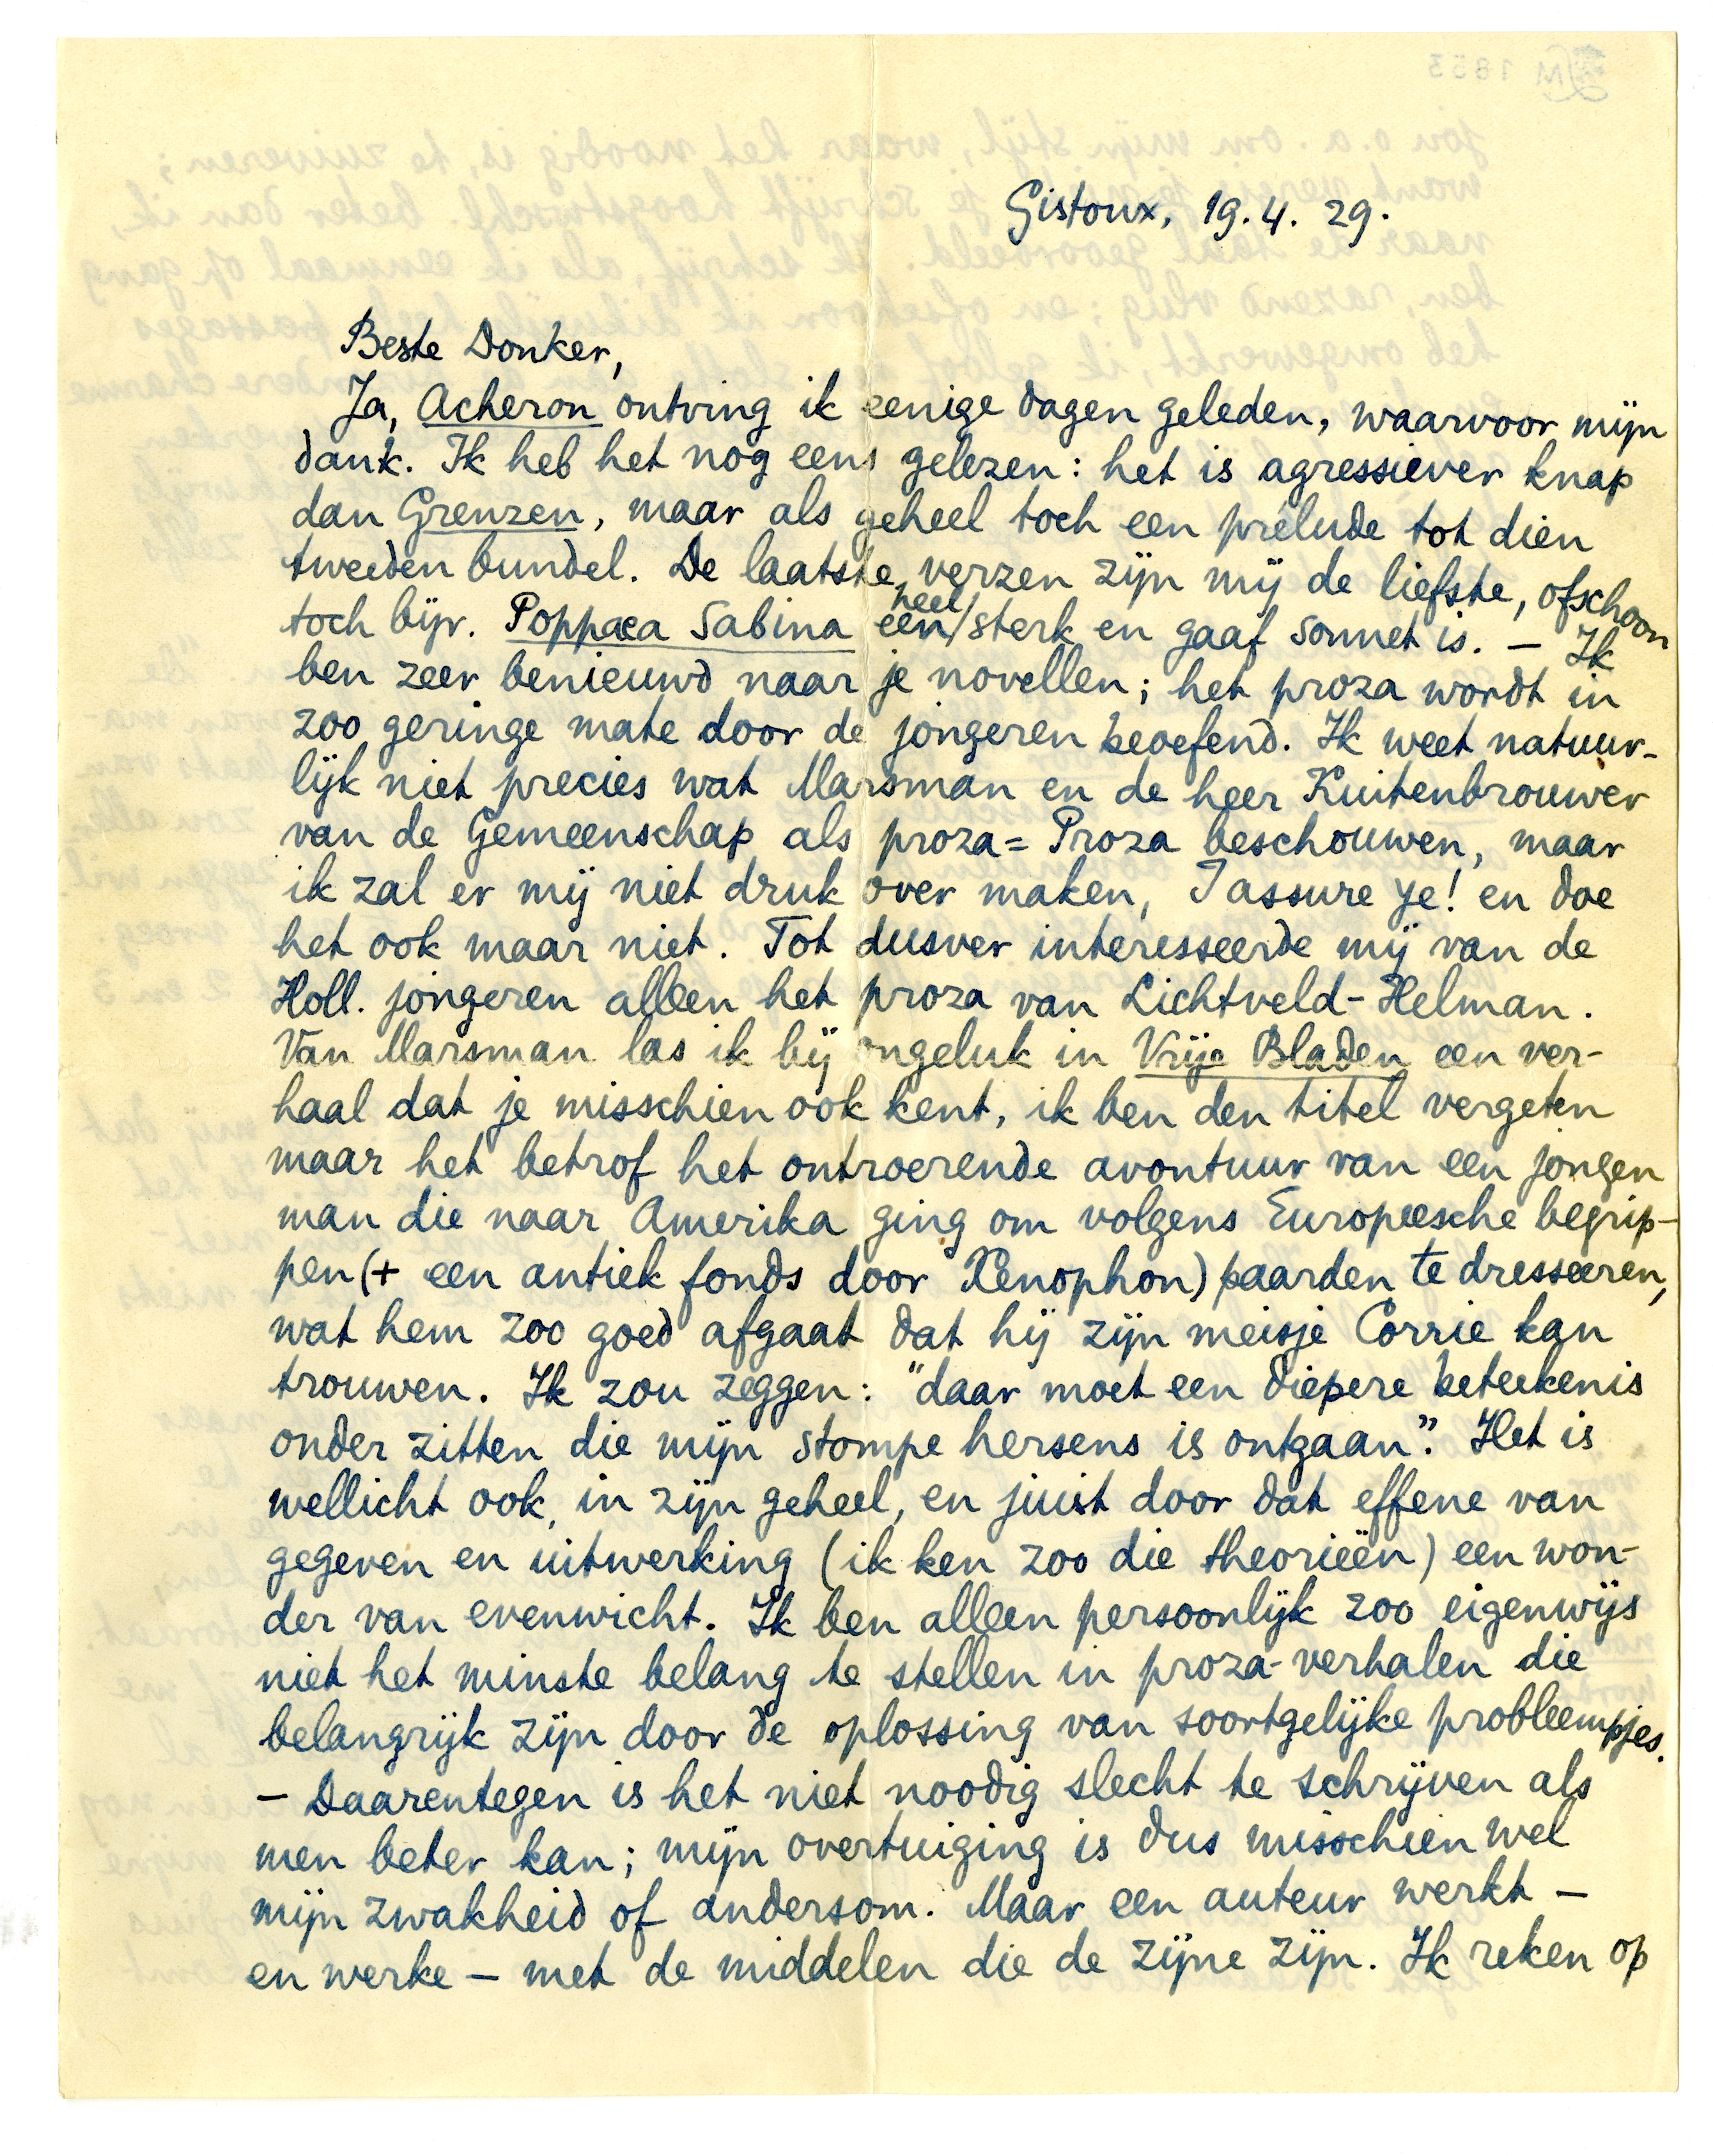 LM 1853
Gistoux, 19.4.29.
Beste Donker,
Ja, Acheron ontving ik eenige dagen geleden, waarvoor mijn
dank. Ik heb het nog eens gelezen: het is agressiever knap
dan Grenzen, maar als geheel toch een prélude tot dien
tweeden bundel. De laatste verzen zijn mij de liefste, ofschoon
toch bijv. Poppaea Sabina een heel sterk en gaaf sonnet is. — Ik
ben zeer benieuwd naar je novellen; het proza wordt in
zoo geringe mate door de jongeren beoefend. Ik weet natuur-
lijk niet precies wat Marsman en de heer Kuitenbrouwer
van de Gemeenschap als proza = Proza beschouwen, maar
ik zal er mij niet druk over maken, I assure ye! en doe
het ook maar niet. Tot dusver interesseerde mij van de
Holl. jongeren alleen het proza van Lichtveld-Helman.
Van Marsman las ik bij ongeluk in Vrije Bladen een ver-
haal dat je misschien ook kent, ik ben den titel vergeten
maar het betrof het ontroerende avontuur van een jongen
man die naar Amerika ging om volgens Europeesche begrip-
pen (+ een antiek fonds door Xenophon) paarden te dresseeren,
wat hem zoo goed afgaat dat hij zijn meisje Corrie kan
trouwen. Ik zou zeggen: "daar moet een diepere beteekenis
onder zitten die mijn stompe hersens is ontgaan". Het is
wellicht ook, in zijn geheel, en juist door dat effene van
gegeven en uitwerking (ik ken zoo die theorieën) een won-
der van evenwicht. Ik ben alleen persoonlijk zoo eigenwijs
niet het minste belang te stellen in proza-verhalen die
belangrijk zijn door de oplossing van soortgelijke probleempjes.
— Daarentegen is het niet noodig slecht te schrijven als
men beter kan; mijn overtuiging is dus misschien wel
mijn zwakheid of andersom. Maar een auteur werkt —
en werke — met de middelen die de zijne zijn. Ik reken op